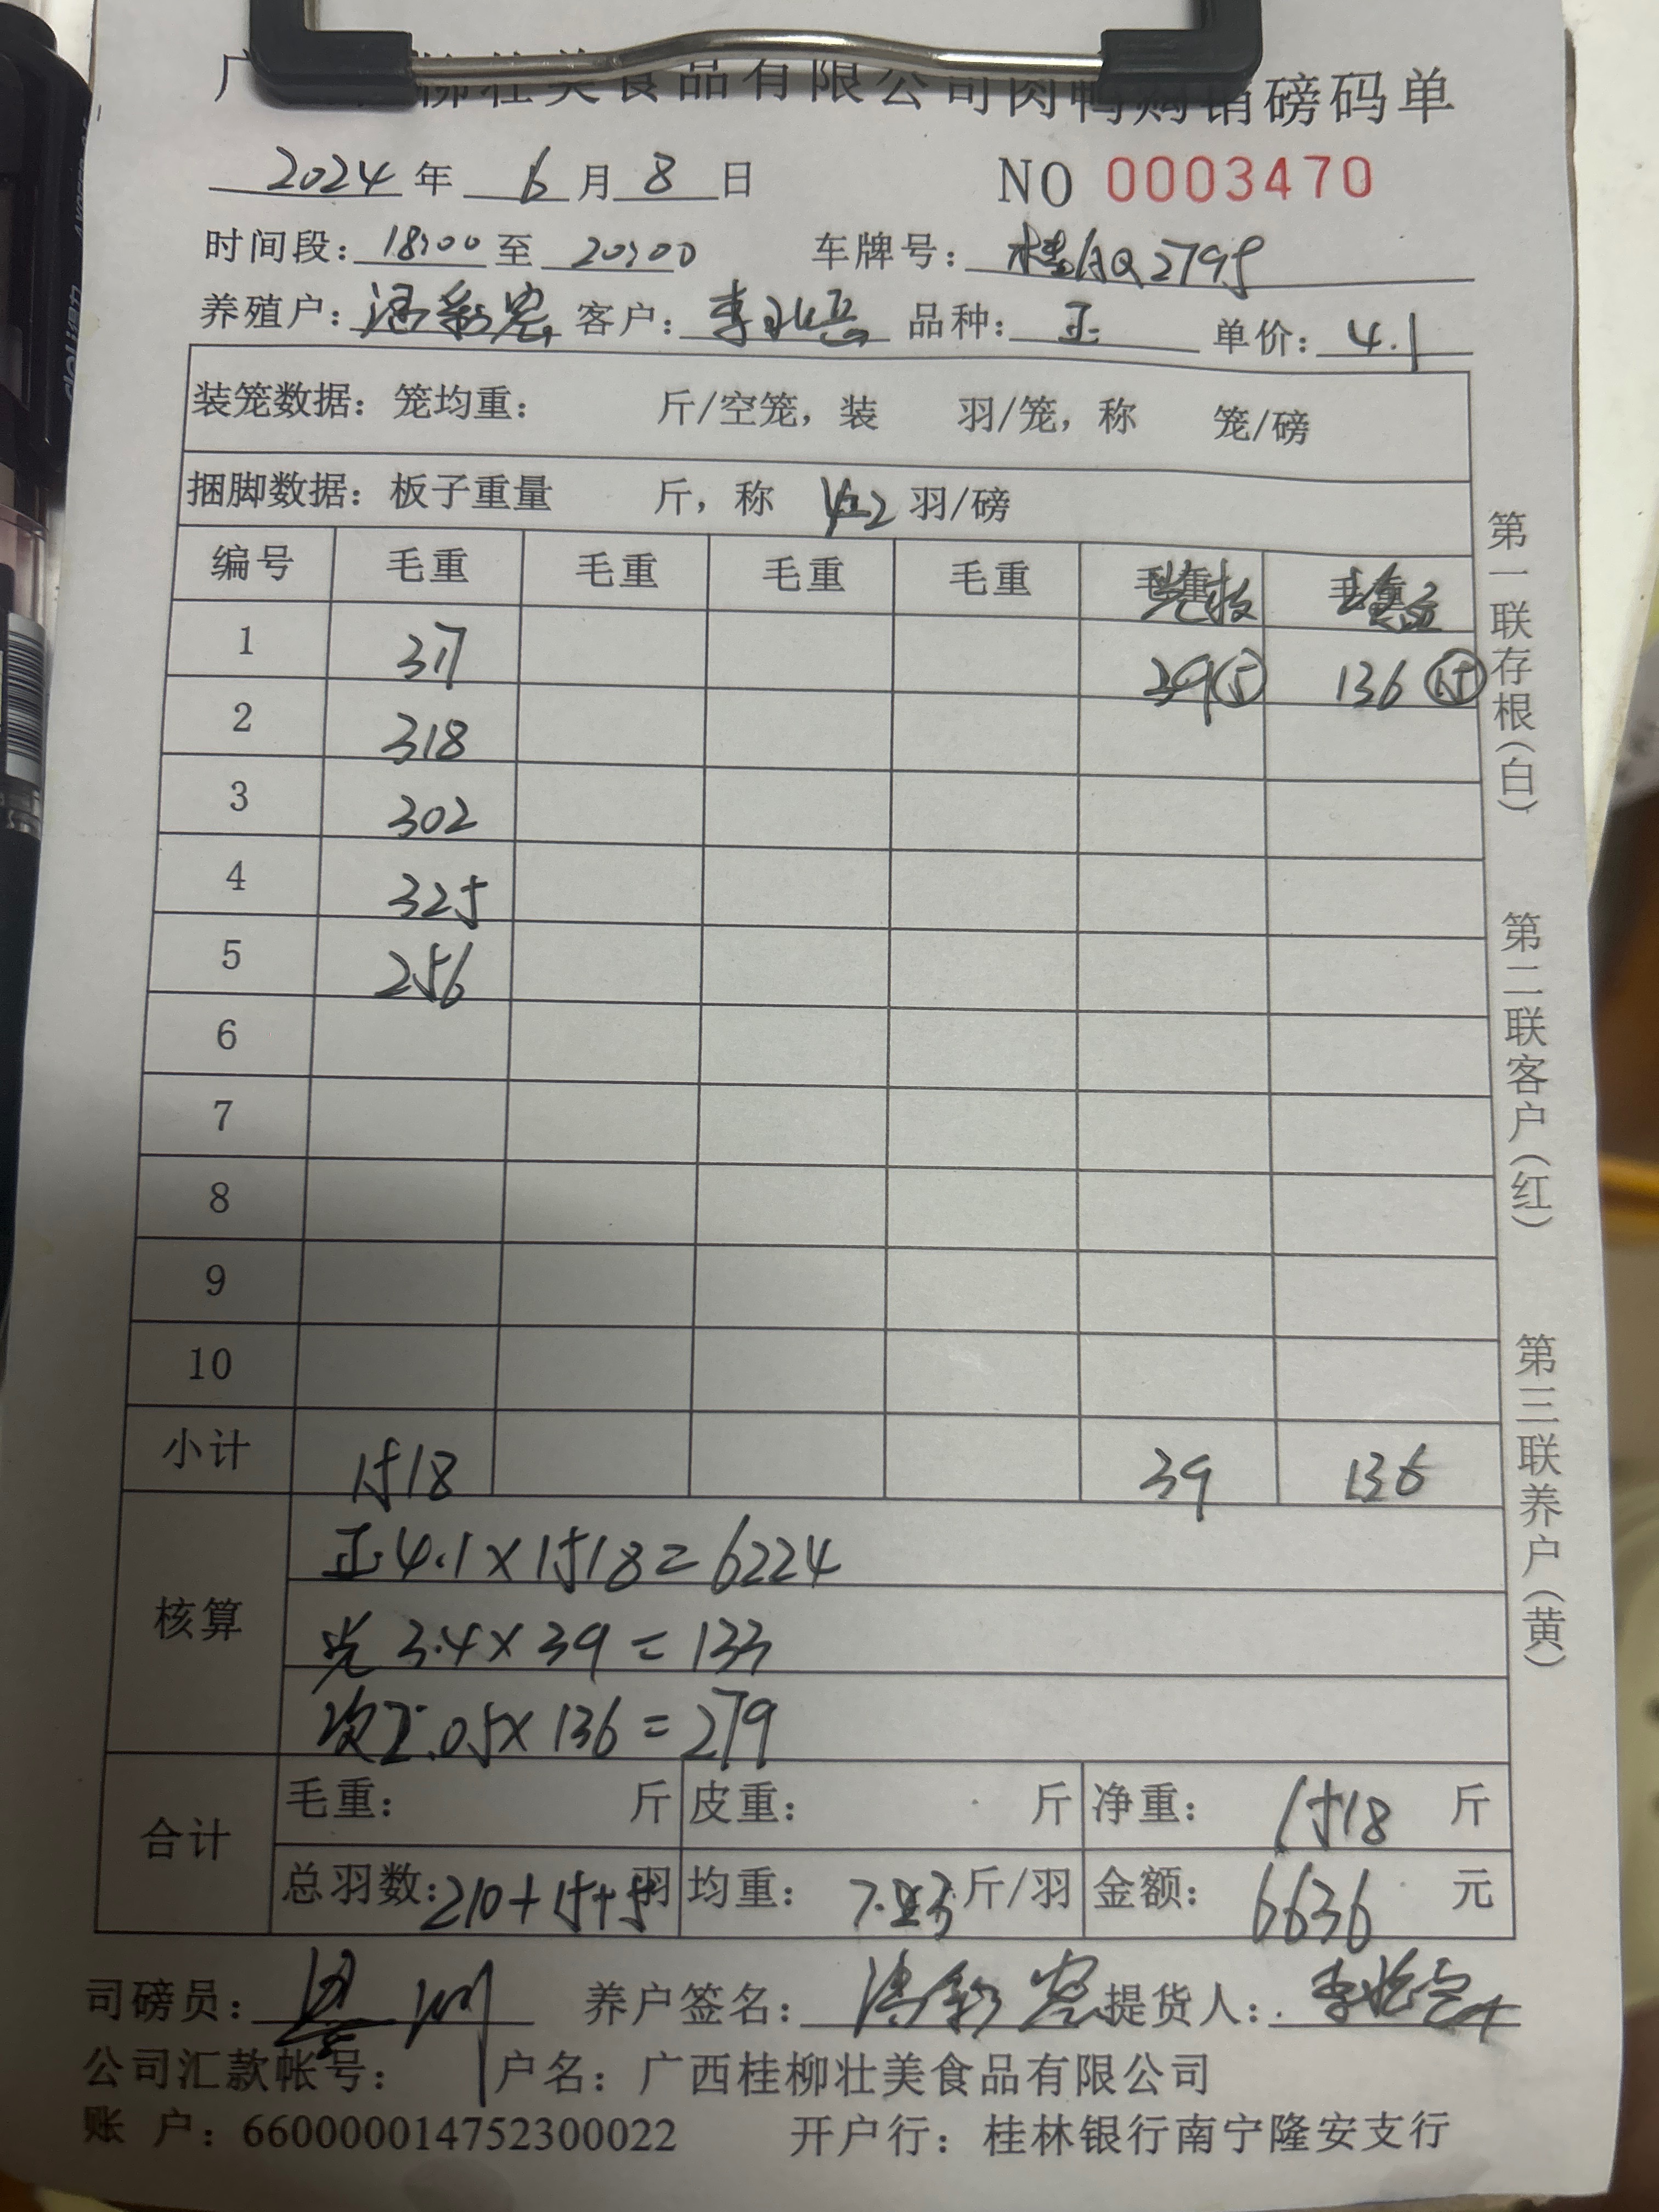 广 柳壮美食品有限公司肉鸭购销磅码单
2024 年 6 月 8 日 NO 0003470
时间段: 18:00 至 20:00 车牌号: 桂AQ2795
养殖户: 客户: 李 品种: 正 单价: 4.1
装笼数据: 笼均重: 斤/空笼, 装 羽/笼, 称 笼/磅
捆脚数据: 板子重量 斤, 称 羽/磅
编号 毛重 毛重 毛重 毛重
1 317 39 ⑤ 136 ⑮
2 318
3 302
4 325
5 256
6
7
8
9
10
小计 1518 39 136
核算 正 4.1×1518=6224
光 3.4×39=133
次 2.05×136=279
合计 毛重: 斤 皮重: 斤 净重: 1518 斤
总羽数: 210+15+5 羽 均重: 7.23 斤/羽 金额: 6636 元
司磅员: 养户签名: 提货人: 李
公司汇款帐号: 户名: 广西桂柳壮美食品有限公司
账 户: 660000014752300022 开户行: 桂林银行南宁隆安支行
第一联存根(白)
第二联客户(红)
第三联养户(黄)
deli得力